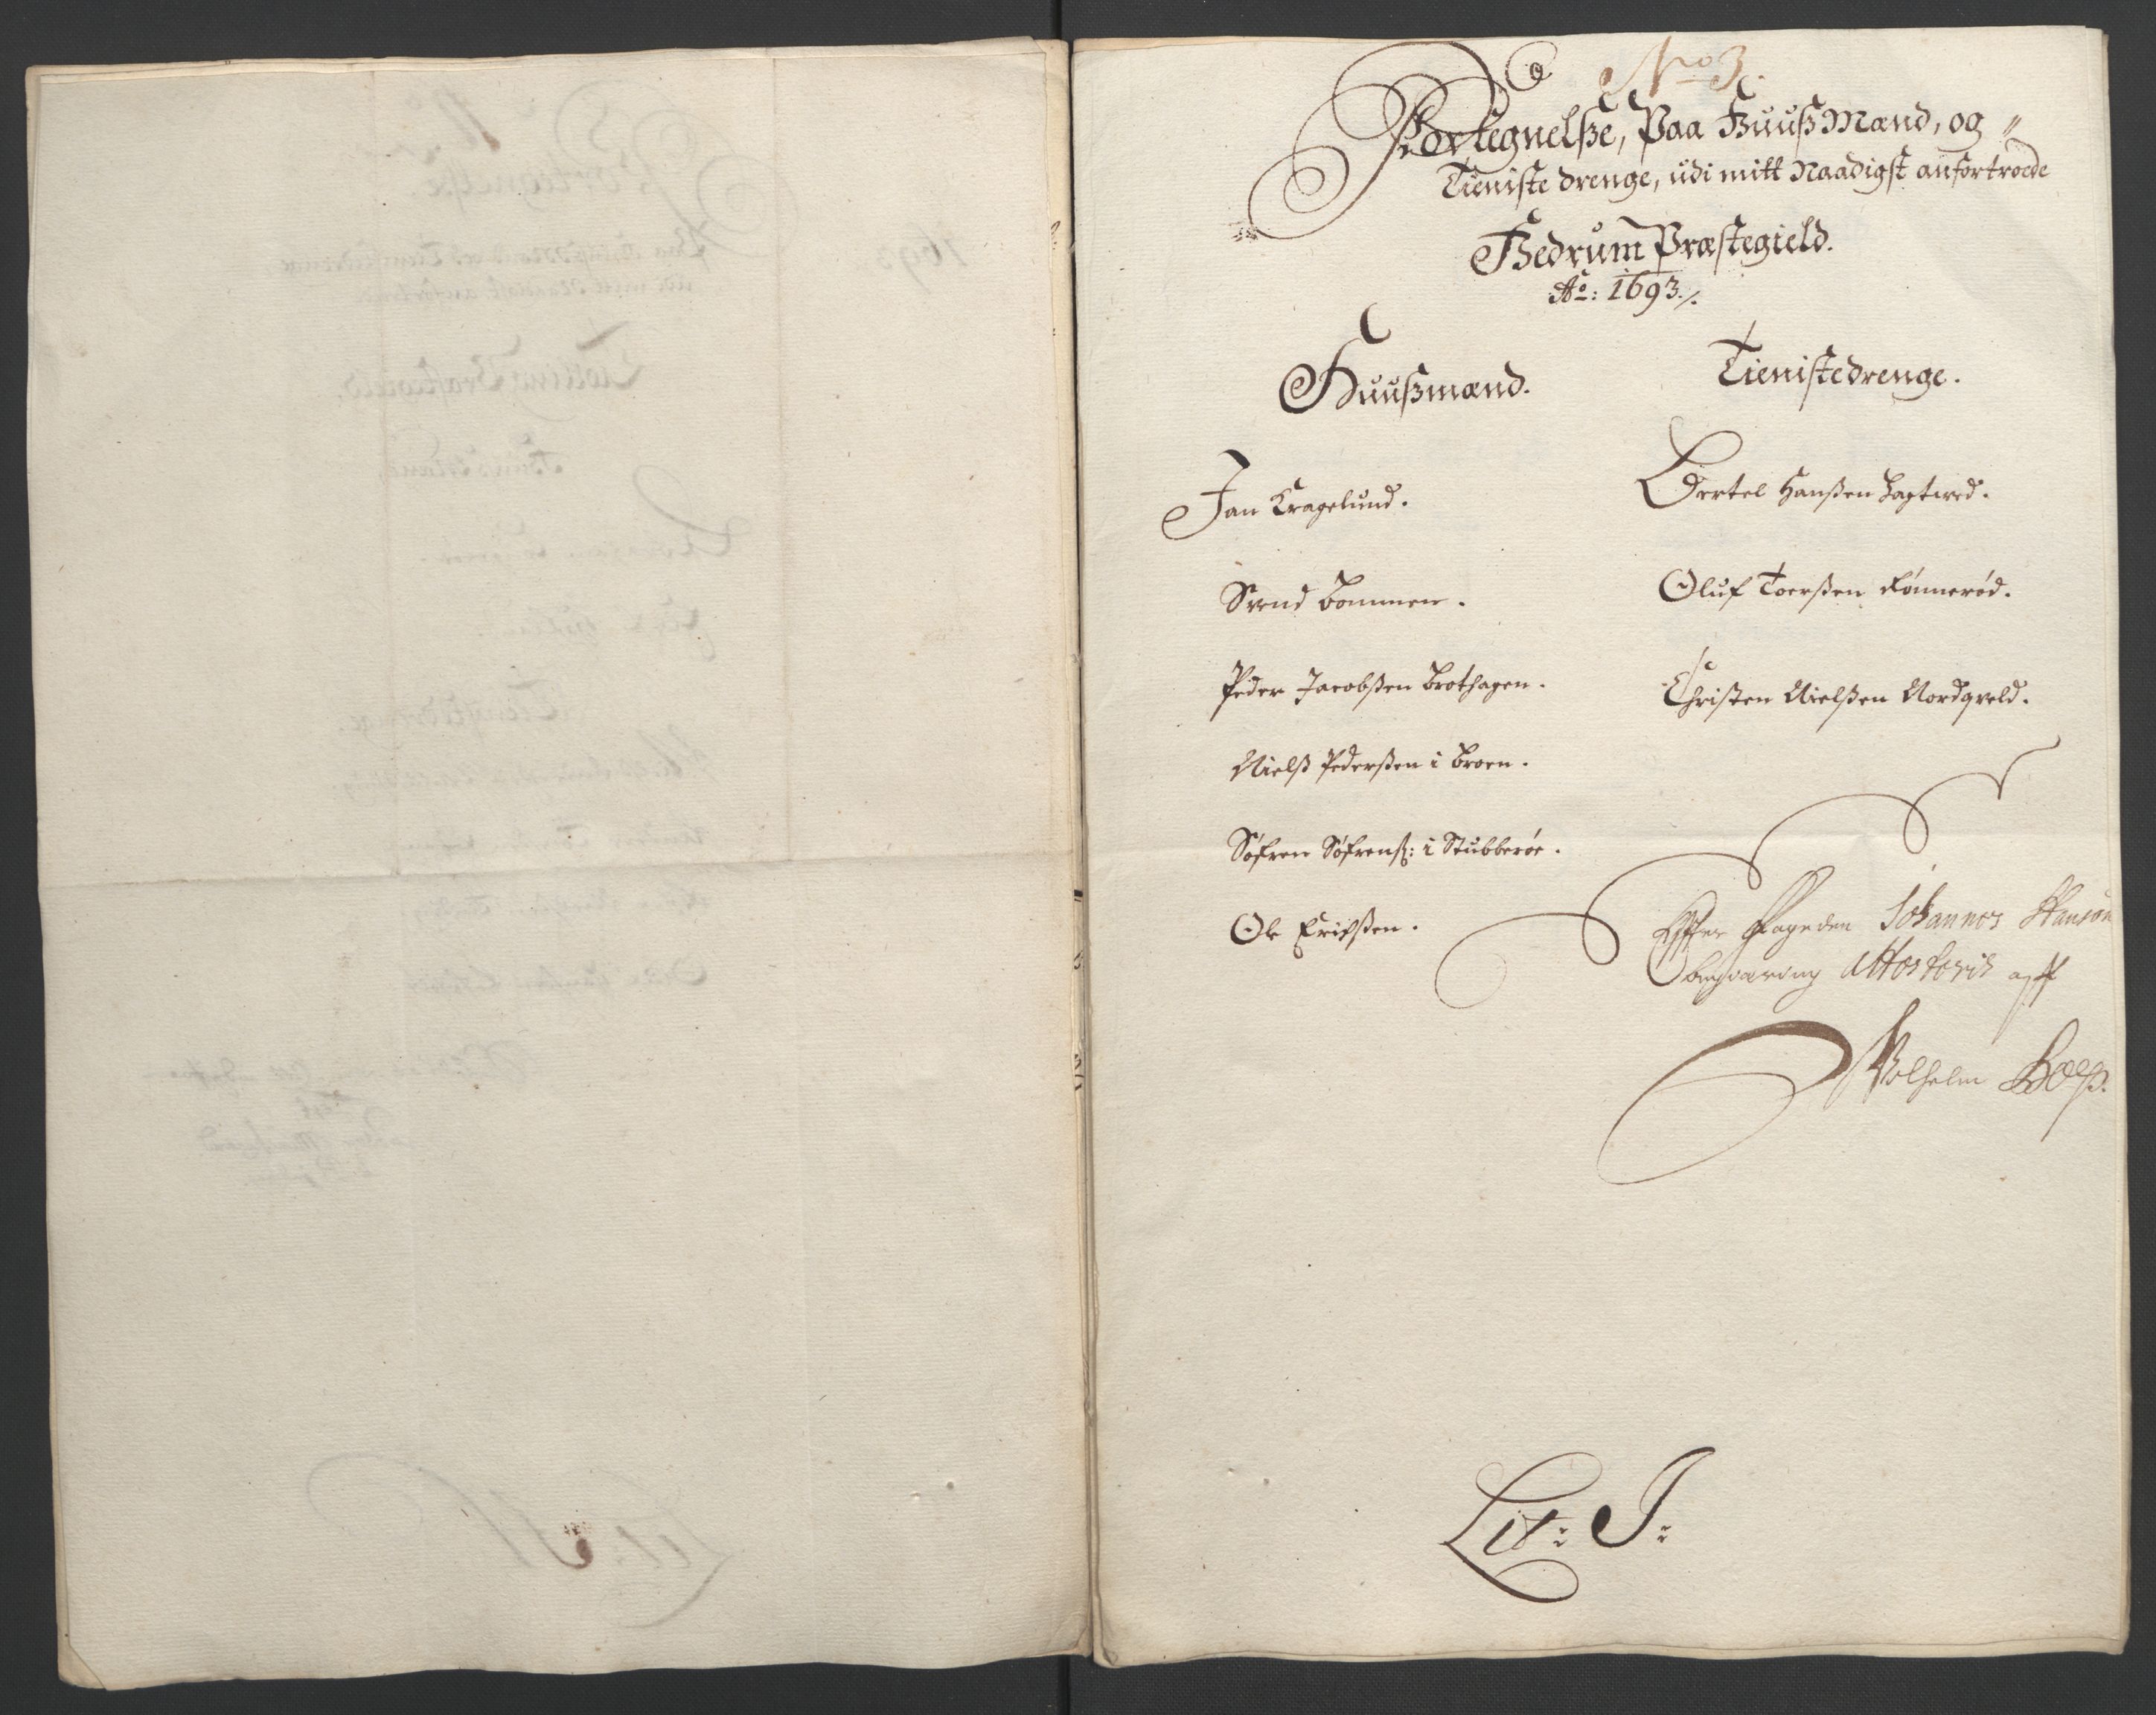 No 3.
Fortegnelße, Paa Huuß Mænd, og
Tieniste drenge, udi mitt Naadigst anfortroede
Hedrum Præstegield.
Ao: 1693./.
Huußmænd.
Jan Kragelund.
Svend Bommen.
Peder Jacobßen Brothagen.
Nielß Pederßen i Broen.
Søfren Søfrenß: i Stubberøe.
Ole Erichßen.
Tienistedrenge.
Bertel Hanßen
Oluf Toerßen Rønnerød.
Christen Nielßen Nordqveld.
Effter Fogeden Johannes Hanson
begiæring Attesteris aff
Wilhelm
Lit: J: